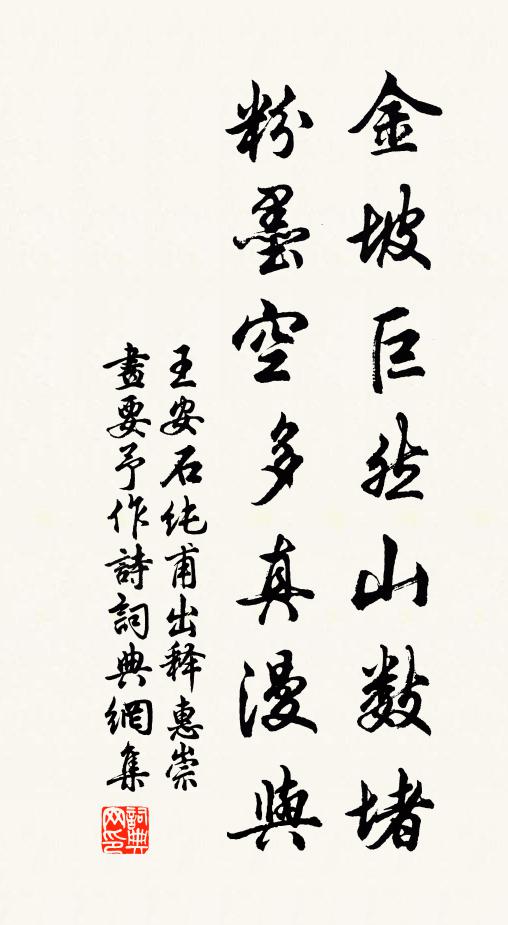 金坡巨然山数堵
粉墨空多真漫與
王安石纯甫出释惠崇
畫要予作詩詞典網集
詞典网印